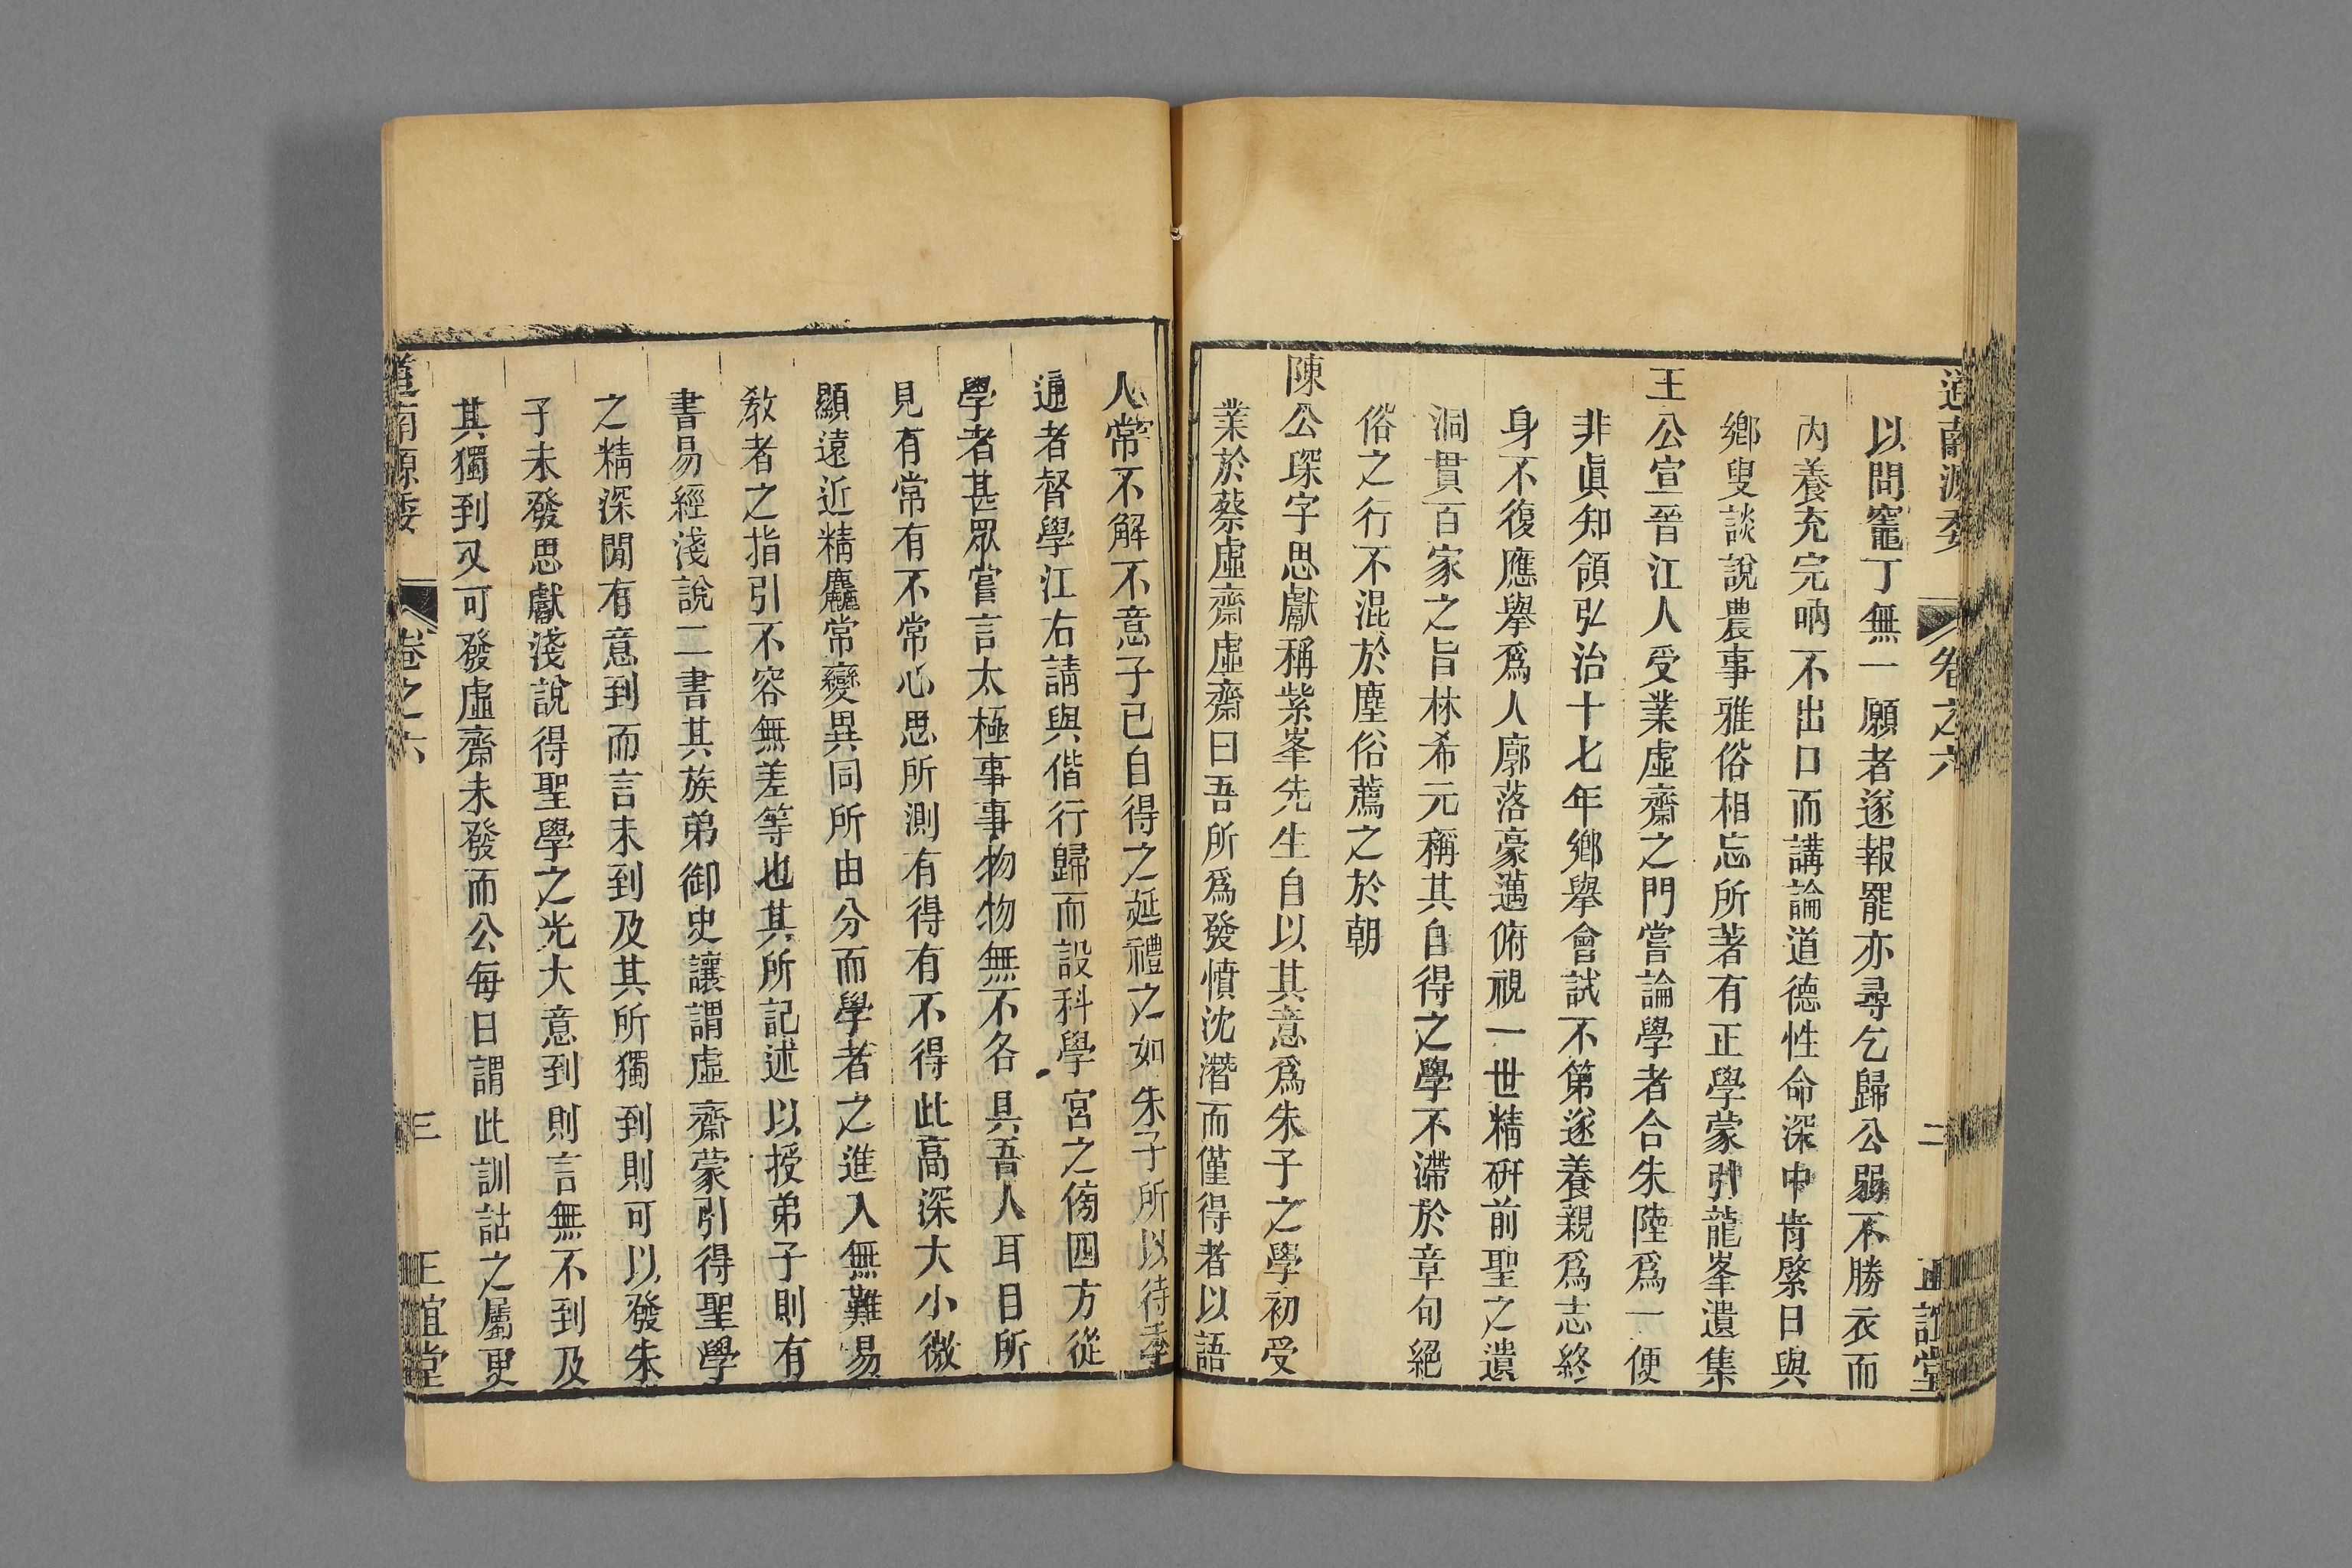 道南源委 卷之六 二 正誼堂
以問竈丁無一願者遂報罷亦尋乞歸公弱不勝衣而
內養充完吶不出口而講論道德性命深中肯綮日與
鄉叟談說農事雅俗相忘所著有正學蒙引龍峯遺集
王公宣晉江人受業虛齋之門嘗論學者合朱陸爲一便
非眞知領弘治十七年鄉舉會試不第遂養親爲志終
身不復應舉爲人廓落豪邁俯視一世精硏前聖之遺
洞貫百家之旨林希元稱其自得之學不滯於章句絕
俗之行不混於塵俗薦之於朝
陳公琛字思獻稱紫峯先生自以其意爲朱子之學初受
業於蔡虛齋虛齋曰吾所爲發憤沈潛而僅得者以語
人常不解不意子已自得之延禮之如朱子所以待季
通者督學江右請與偕行歸而設科學宮之傍四方從
學者甚眾嘗言太極事事物物無不各具吾人耳目所
見有常有不常心思所測有得有不得此高深大小微
顯遠近精麤常變異同所由分而學者之進入無難易
敎者之指引不容無差等也其所記述以授弟子則有
書易經淺說二書其族弟御史讓謂虛齋蒙引得聖學
之精深閒有意到而言未到及其所獨到則可以發朱
子未發思獻淺說得聖學之光大意到則言無不到及
其獨到又可發虛齋未發而公每日謂此訓詁之屬更
道南源委 卷之六 三 正誼堂